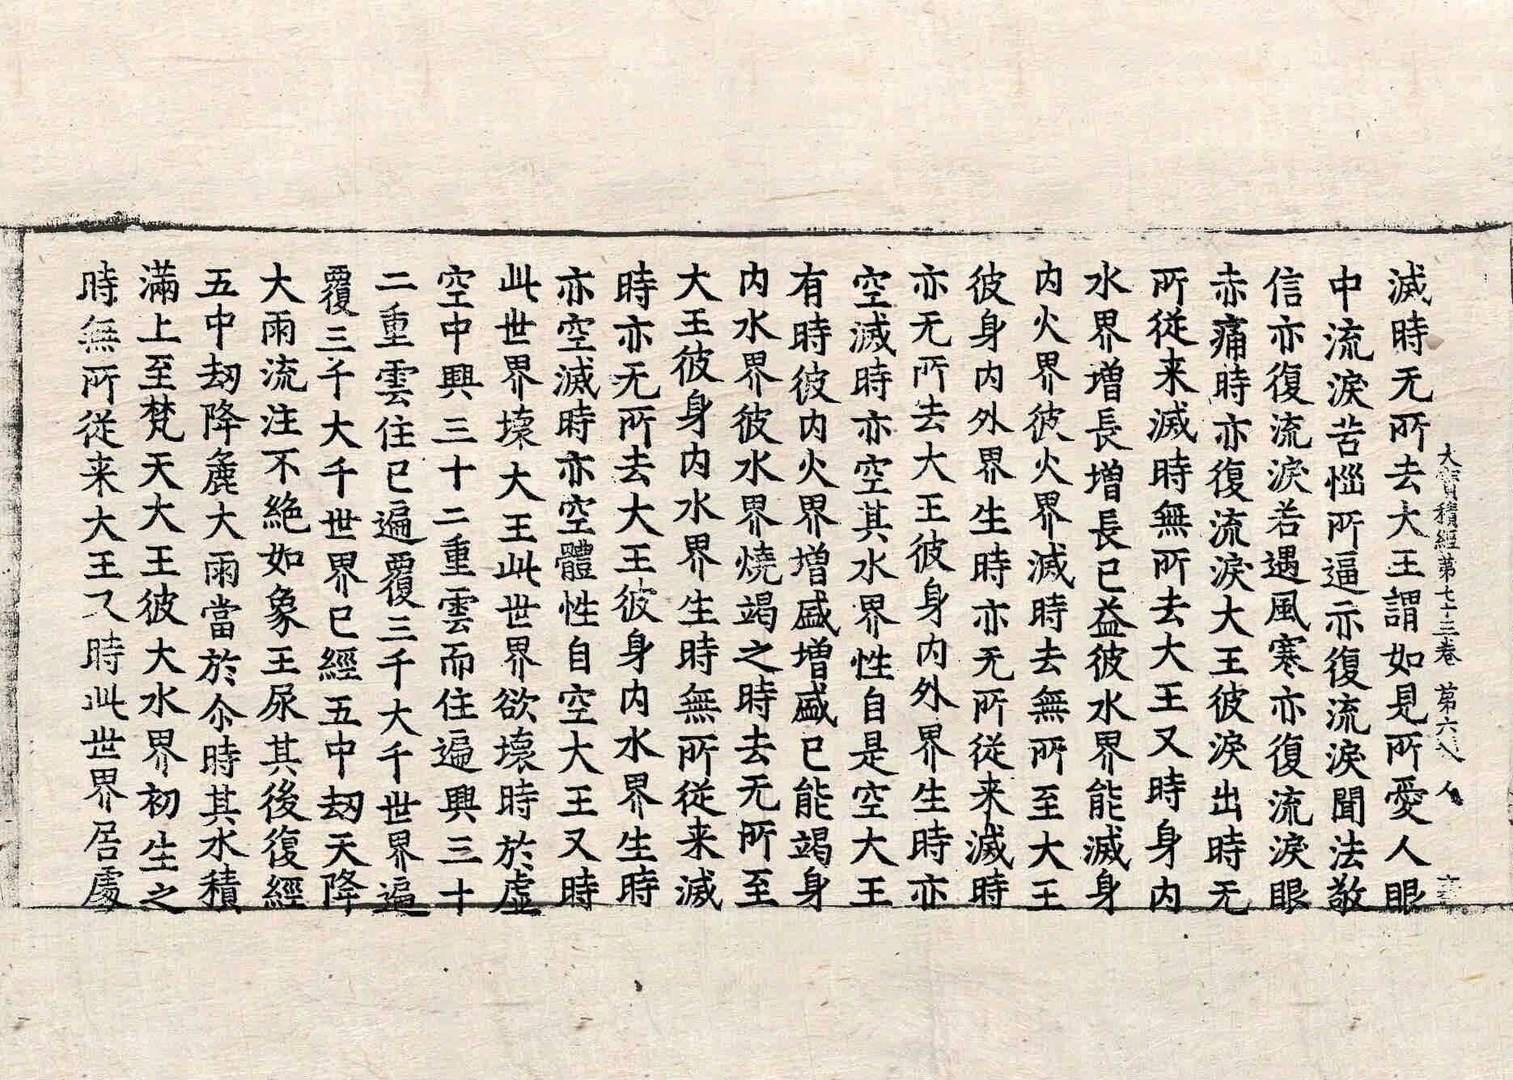 大寶積經第七十三卷　第六張　人
滅時无所去大王謂如見所愛人眼
中流淚苦惱所逼亦復流淚聞法敬
信亦復流淚若遇風寒亦復流淚眼
赤痛時亦復流淚大王彼淚出時无
所従来滅時無所去大王又時身内
水界增長增長已益彼水界能滅身
内火界彼火界滅時去無所至大王
彼身内外界生時亦无所従来滅時
亦无所去大王彼身内外界生時亦
空滅時亦空其水界性自是空大王
有時彼内火界增盛增盛已能竭身
内水界彼水界燒竭之時去无所至
大王彼身内水界生時無所従来滅
時亦无所去大王彼身内水界生時
亦空滅時亦空體性自空大王又時
此世界壞大王此世界欲壞時於虛
空中興三十二重雲而住遍興三十
二重雲住已遍覆三千大千世界遍
覆三千大千世界已經五中劫天降
大雨流注不絶如象王尿其後復經
五中劫降麁大雨當於尒時其水積
滿上至梵天大王彼大水界初生之
時無所従来大王又時此世界居處